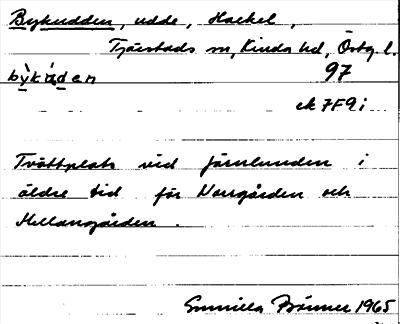 Bykudden, udde, Hackel,
Tjärstads sn, Kinda hd, Östg. l.
bỳkάden 97
ek 7F9i
Tvättplats vid Järnlunden i
äldre tid för Norrgården och
Mellangården.
Gunnilla Brönner 1965